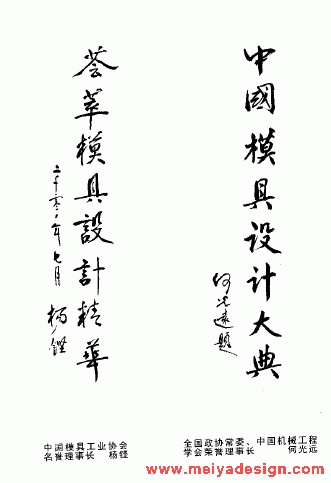 中國模具设计大典
何光遠题
荟萃模具設計精華
二千零二年七月 杨铿
全国政协常委、中国机械工程
学会荣誉理事长 何光远
中国模具工业协会
名誉理事长 杨铿
www.meiyadesign.com